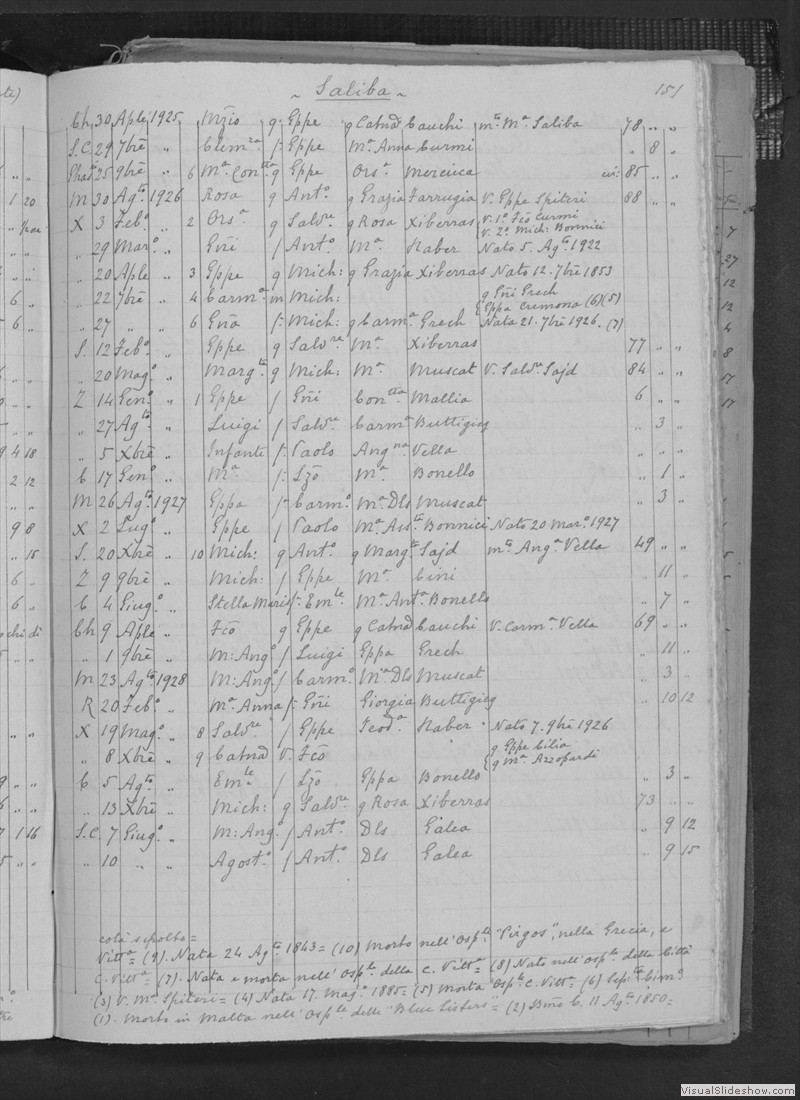 te)
~ Saliba ~ 151
Ch 30 Aple 1925 Mzio g Eppe g Catnd Cauchi mto Ma Saliba 78 " "
S.C. 29 7bre " Clemza f. Eppe Ma Anna Curmi " 8 "
25 9bre " 6 Ma Contta g Eppe Orsa Mercieca 85 " "
M 30 Agto 1926 Rosa g Anto g Grazia Farrugia V. Eppe Spiteri 88 " "
X 3 Febo " 2 Orsa g Salvre g Rosa Xiberras V. 1o Fco Curmi
V. 2o Mich: Bonnici
" 29 Maro " Gni f Anto Ma Haber Nato 5. Agto 1922
" 20 Aple " 3 Eppe g Mich: g Grazia Xiberras Nato 12. 7bre 1853
" 22 7bre " 4 Carma m Mich: g Gni Grech
Eppa Cremona (6)(5)
" 27 " " 6 Gna f. Mich: g Carma Grech Nata 21. 7bre 1926. (7)
S. 12 Febo " Eppe g Salvre Ma Xiberras 77 " "
" 20 Mago " Margta g Mich: Ma Muscat V. Salvre Sajd 84 " "
Z 14 Geno " 1 Eppe f Gni Contta Mallia 6 "
" 27 Agto " Luigi f Salvre Carma Buttigieg " 3 "
" 5 Xbre " Infante f. Paolo Angna Vella " " "
C 17 Geno " Ma f. Lzo Ma Bonello " 1 "
M 26 Agto 1927 Eppa f. Carmo Ma Dls Muscat " 3 "
X 2 Lugo " Eppe f Paolo Ma Assta Bonnici Nato 20 Maro 1927
S. 20 Xbre " 10 Mich: g Anto g Margta Sajd mto Anga Vella 49 " "
Z 9 9bre " Mich: f Eppe Ma Cini " 11 "
C 4 Giugo " Stella Maris f. Emle Ma Anta Bonello " 7 "
Ch 9 Aple " Fco g Eppe g Catnd Cauchi V. Carma Vella 69 " "
" 1 9bre " M: Ango f Luigi Eppa Grech " 11 "
M 23 Agto 1928 M: Ango f Carmo Ma Dls Muscat " 3 "
R 20 Febo " Ma Anna f. Gni Giorgia Buttigieg " 10 12
X 19 Mago " 8 Salvre f Eppe Feoda Haber Nato 7. 9bre 1926
" 8 Xbre " 9 Catnd V. Fco g Eppe Cilia
g Ma Azzopardi
C 5 Agto " Emle f Lzo Eppa Bonello " 3 "
" 13 Xbre " Mich: g Salvre g Rosa Xiberras 73 " "
S.C. 7 Giugo " M: Ango f Anto Dls Galea " 9 12
" 10 " " Agosto f Anto Dls Galea " 9 15
colà sepolto =
Vitta = (9). Nata 24 Agto 1843 = (10) Morto nell' Osple "Pirgos", nella Grecia, e
C. Vitta = (7). Nata e morta nell' Osple della C. Vitta = (8) Nato nell' Osple della Città
(3) V. Ma Spiteri = (4) Nata 17. Mago 1885 = (5) Morta Osple C. Vitta = (6)
(1). Morto in Malta nell' Osple delle "Blue Sisters" = (2) C. 11 Agto 1850 =
VisualSlideshow.com